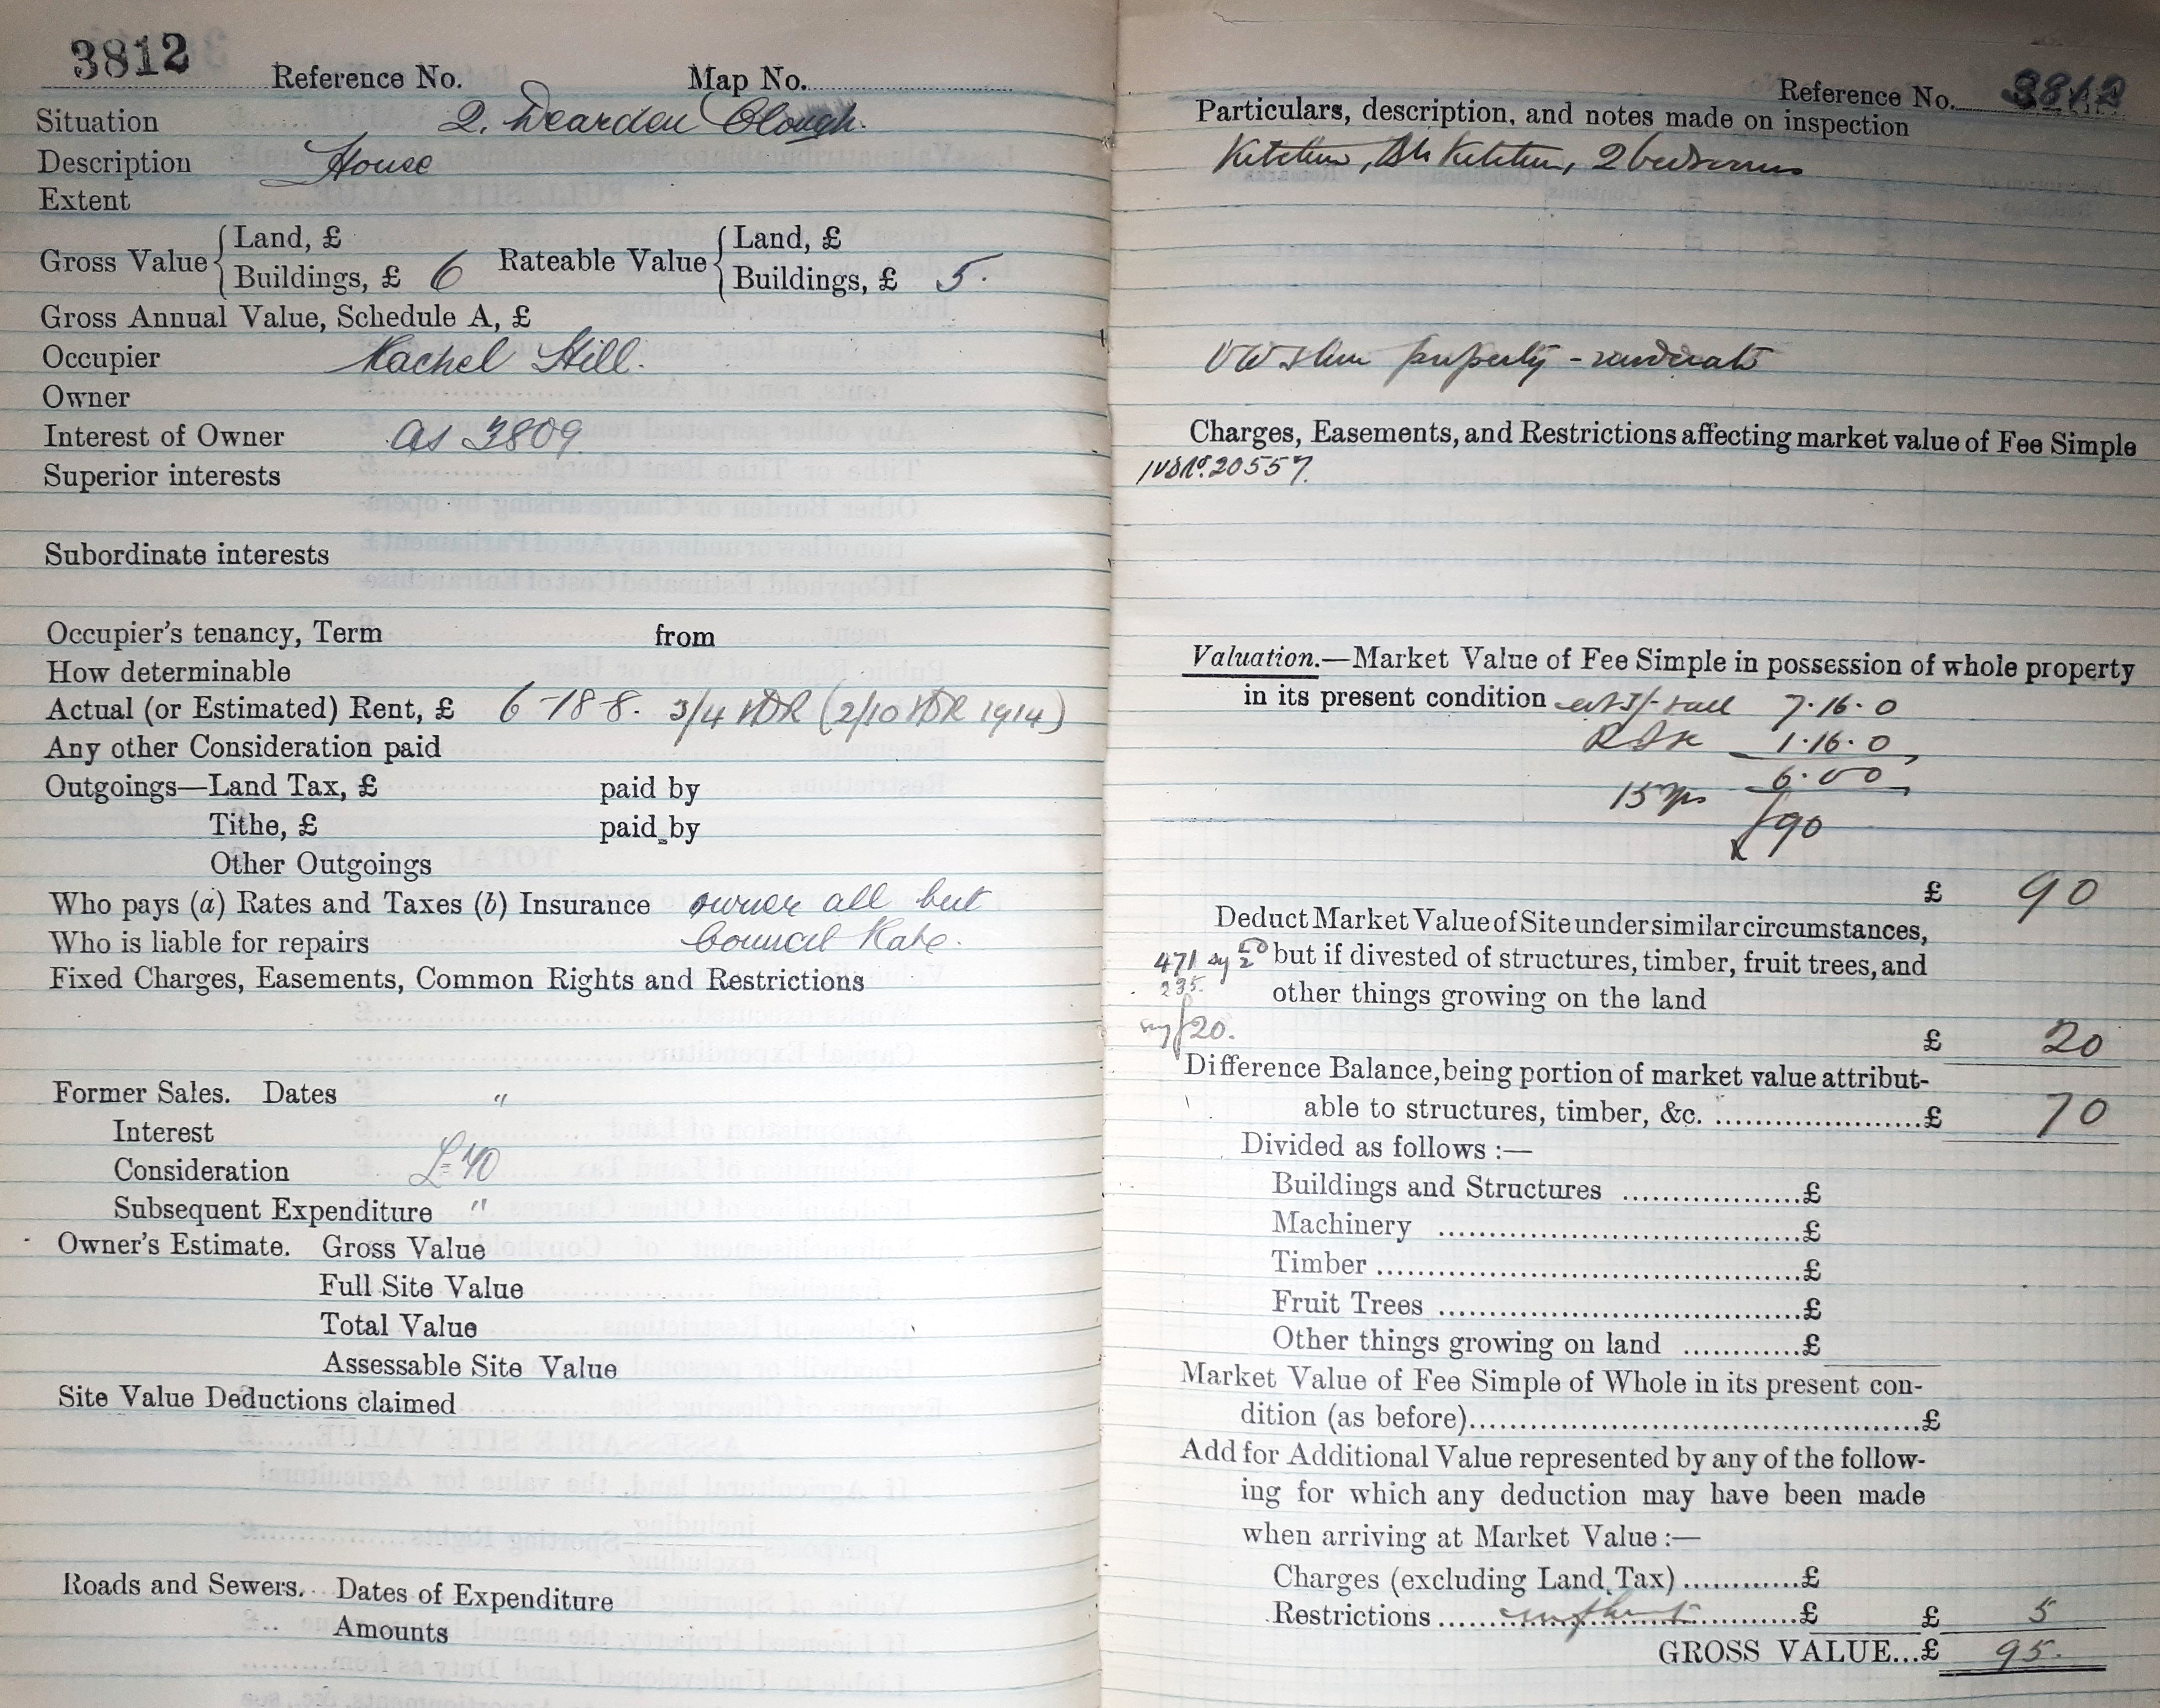 3812 Reference No. Map No.
Situation 2, Dearden Clough.
Description House
Extent
Gross Value { Land, £ Rateable Value { Land, £
Buildings, £ 6 Buildings, £ 5.
Gross Annual Value, Schedule A, £
Occupier Rachel Hill.
Owner
Interest of Owner as 3809.
Superior interests
Subordinate interests
Occupier's tenancy, Term from
How determinable
Actual (or Estimated) Rent, £ 6-18 8. 3/4 (2/10 1914)
Any other Consideration paid
Outgoings—Land Tax, £ paid by
Tithe, £ paid by
Other Outgoings
Who pays (a) Rates and Taxes (b) Insurance owner all but
Who is liable for repairs Council Rate.
Fixed Charges, Easements, Common Rights and Restrictions
Former Sales. Dates "
Interest
Consideration
Subsequent Expenditure "
Owner's Estimate. Gross Value
Full Site Value
Total Value
Assessable Site Value
Site Value Deductions claimed
Roads and Sewers. Dates of Expenditure
Amounts
Reference No. 3812
Particulars, description, and notes made on inspection
Kitchen, Bk Kitchen, 2 bedrooms
property - moderate
Charges, Easements, and Restrictions affecting market value of Fee Simple
20557.
Valuation.—Market Value of Fee Simple in possession of whole property
in its present condition 7.16.0
1.16.0
6.0 0
15 yrs
£90
£ 90
Deduct Market Value of Site under similar circumstances,
471 but if divested of structures, timber, fruit trees, and
235. other things growing on the land
say £20.
£ 20
Difference Balance, being portion of market value attribut-
able to structures, timber, &c. ....................£ 70
Divided as follows :—
Buildings and Structures .................£
Machinery ....................................£
Timber .........................................£
Fruit Trees ...................................£
Other things growing on land ............£
Market Value of Fee Simple of Whole in its present con-
dition (as before)............................................£
Add for Additional Value represented by any of the follow-
ing for which any deduction may have been made
when arriving at Market Value :—
Charges (excluding Land Tax) ............£
Restrictions ....................................£ £ 5
GROSS VALUE...£ 95.